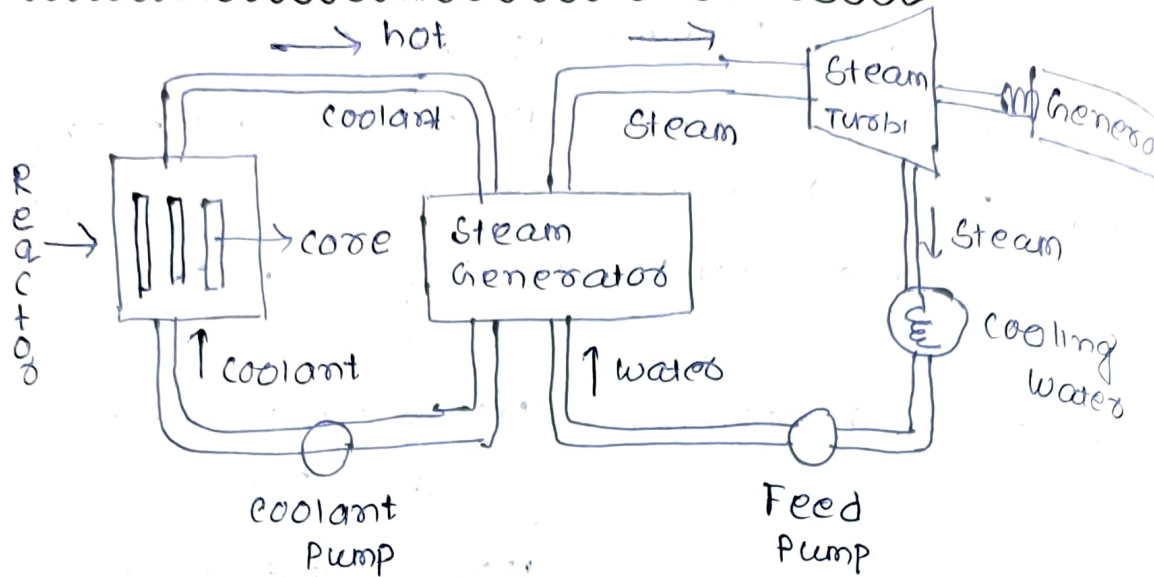 hot
coolant
Steam
Steam
Turbi
Genera
Reactor
core
Steam
Generator
Steam
cooling
water
coolant
water
coolant
Pump
Feed
Pump